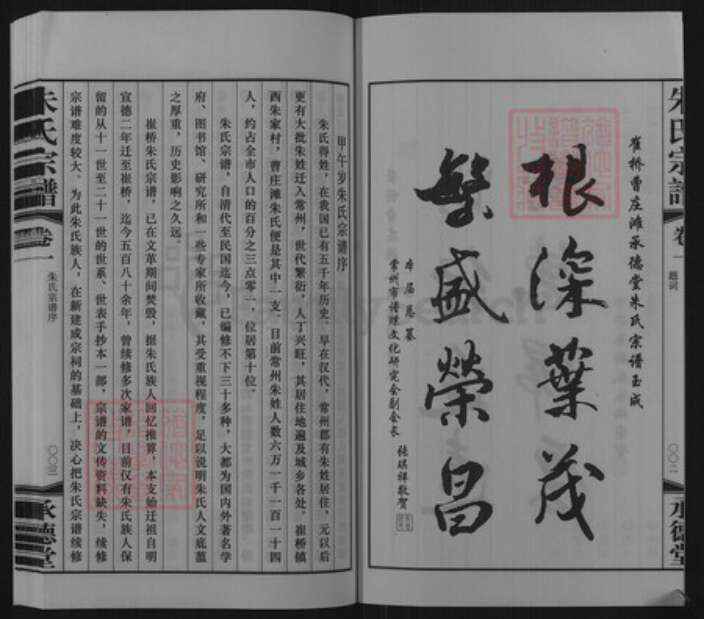 朱氏宗譜
卷一
题词
〇〇二
承德堂
崔桥曹庄滩承德堂朱氏宗谱玉成
根深葉茂
繁盛榮昌
本届总纂
常州市谱牒文化研究会副会长 张琪祥敬贺
甲午岁朱氏宗谱序
朱氏得姓，在我国已有五千年历史。早在汉代，常州郡有朱姓居住，元以后
更有大批朱姓迁入常州，世代繁衍，人丁兴旺，其居住地遍及城乡各处。崔桥镇
西朱家村，曹庄滩朱氏便是其中一支。目前常州朱姓人数六万一千一百一十四
人，约占全市人口的百分之三点零一，位居第十位。
朱氏宗谱，自清代至民国迄今，已编修不下三十多种，大都为国内外著名学
府、图书馆、研究所和一些专家所收藏，其受重视程度，足以说明朱氏人文底蕴
之厚重，历史影响之久远。
崔桥朱氏宗谱，已在文革期间焚毁，据朱氏族人回忆推算，本支始迁祖自明
宣德二年迁至崔桥，迄今五百八十余年，曾续修多次家谱，目前仅有朱氏族人保
留的从十一世至二十一世的世系、世表手抄本一部，宗谱的文传资料缺失，续修
宗谱难度较大。为此朱氏族人，在新建成宗祠的基础上，决心把朱氏宗谱续修
朱氏宗譜
卷一
朱氏宗谱序
〇〇三
承德堂